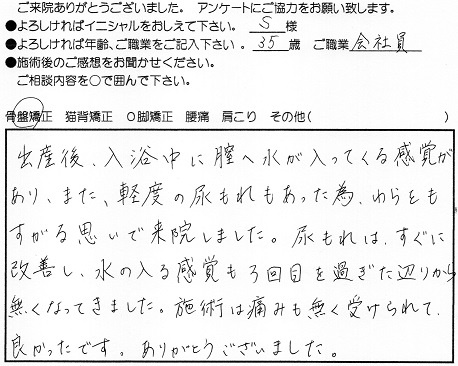 ご来院ありがとうございました。 アンケートにご協力をお願い致します。
●よろしければイニシャルをおしえて下さい。 S 様
●よろしければ年齢、ご職業をご記入下さい。 35 歳 ご職業 会社員
●施術後のご感想をお聞かせください。
ご相談内容を○で囲んで下さい。
骨盤矯正 猫背矯正 O脚矯正 腰痛 肩こり その他( )
出産後、入浴中に膣へ水が入ってくる感覚が
あり、また、軽度の尿もれもあった為、わらをも
すがる思いで来院しました。尿もれは、すぐに
改善し、水の入る感覚も3回目を過ぎた辺りから
無くなってきました。施術は痛みも無く受けられて、
良かったです。ありがとうございました。